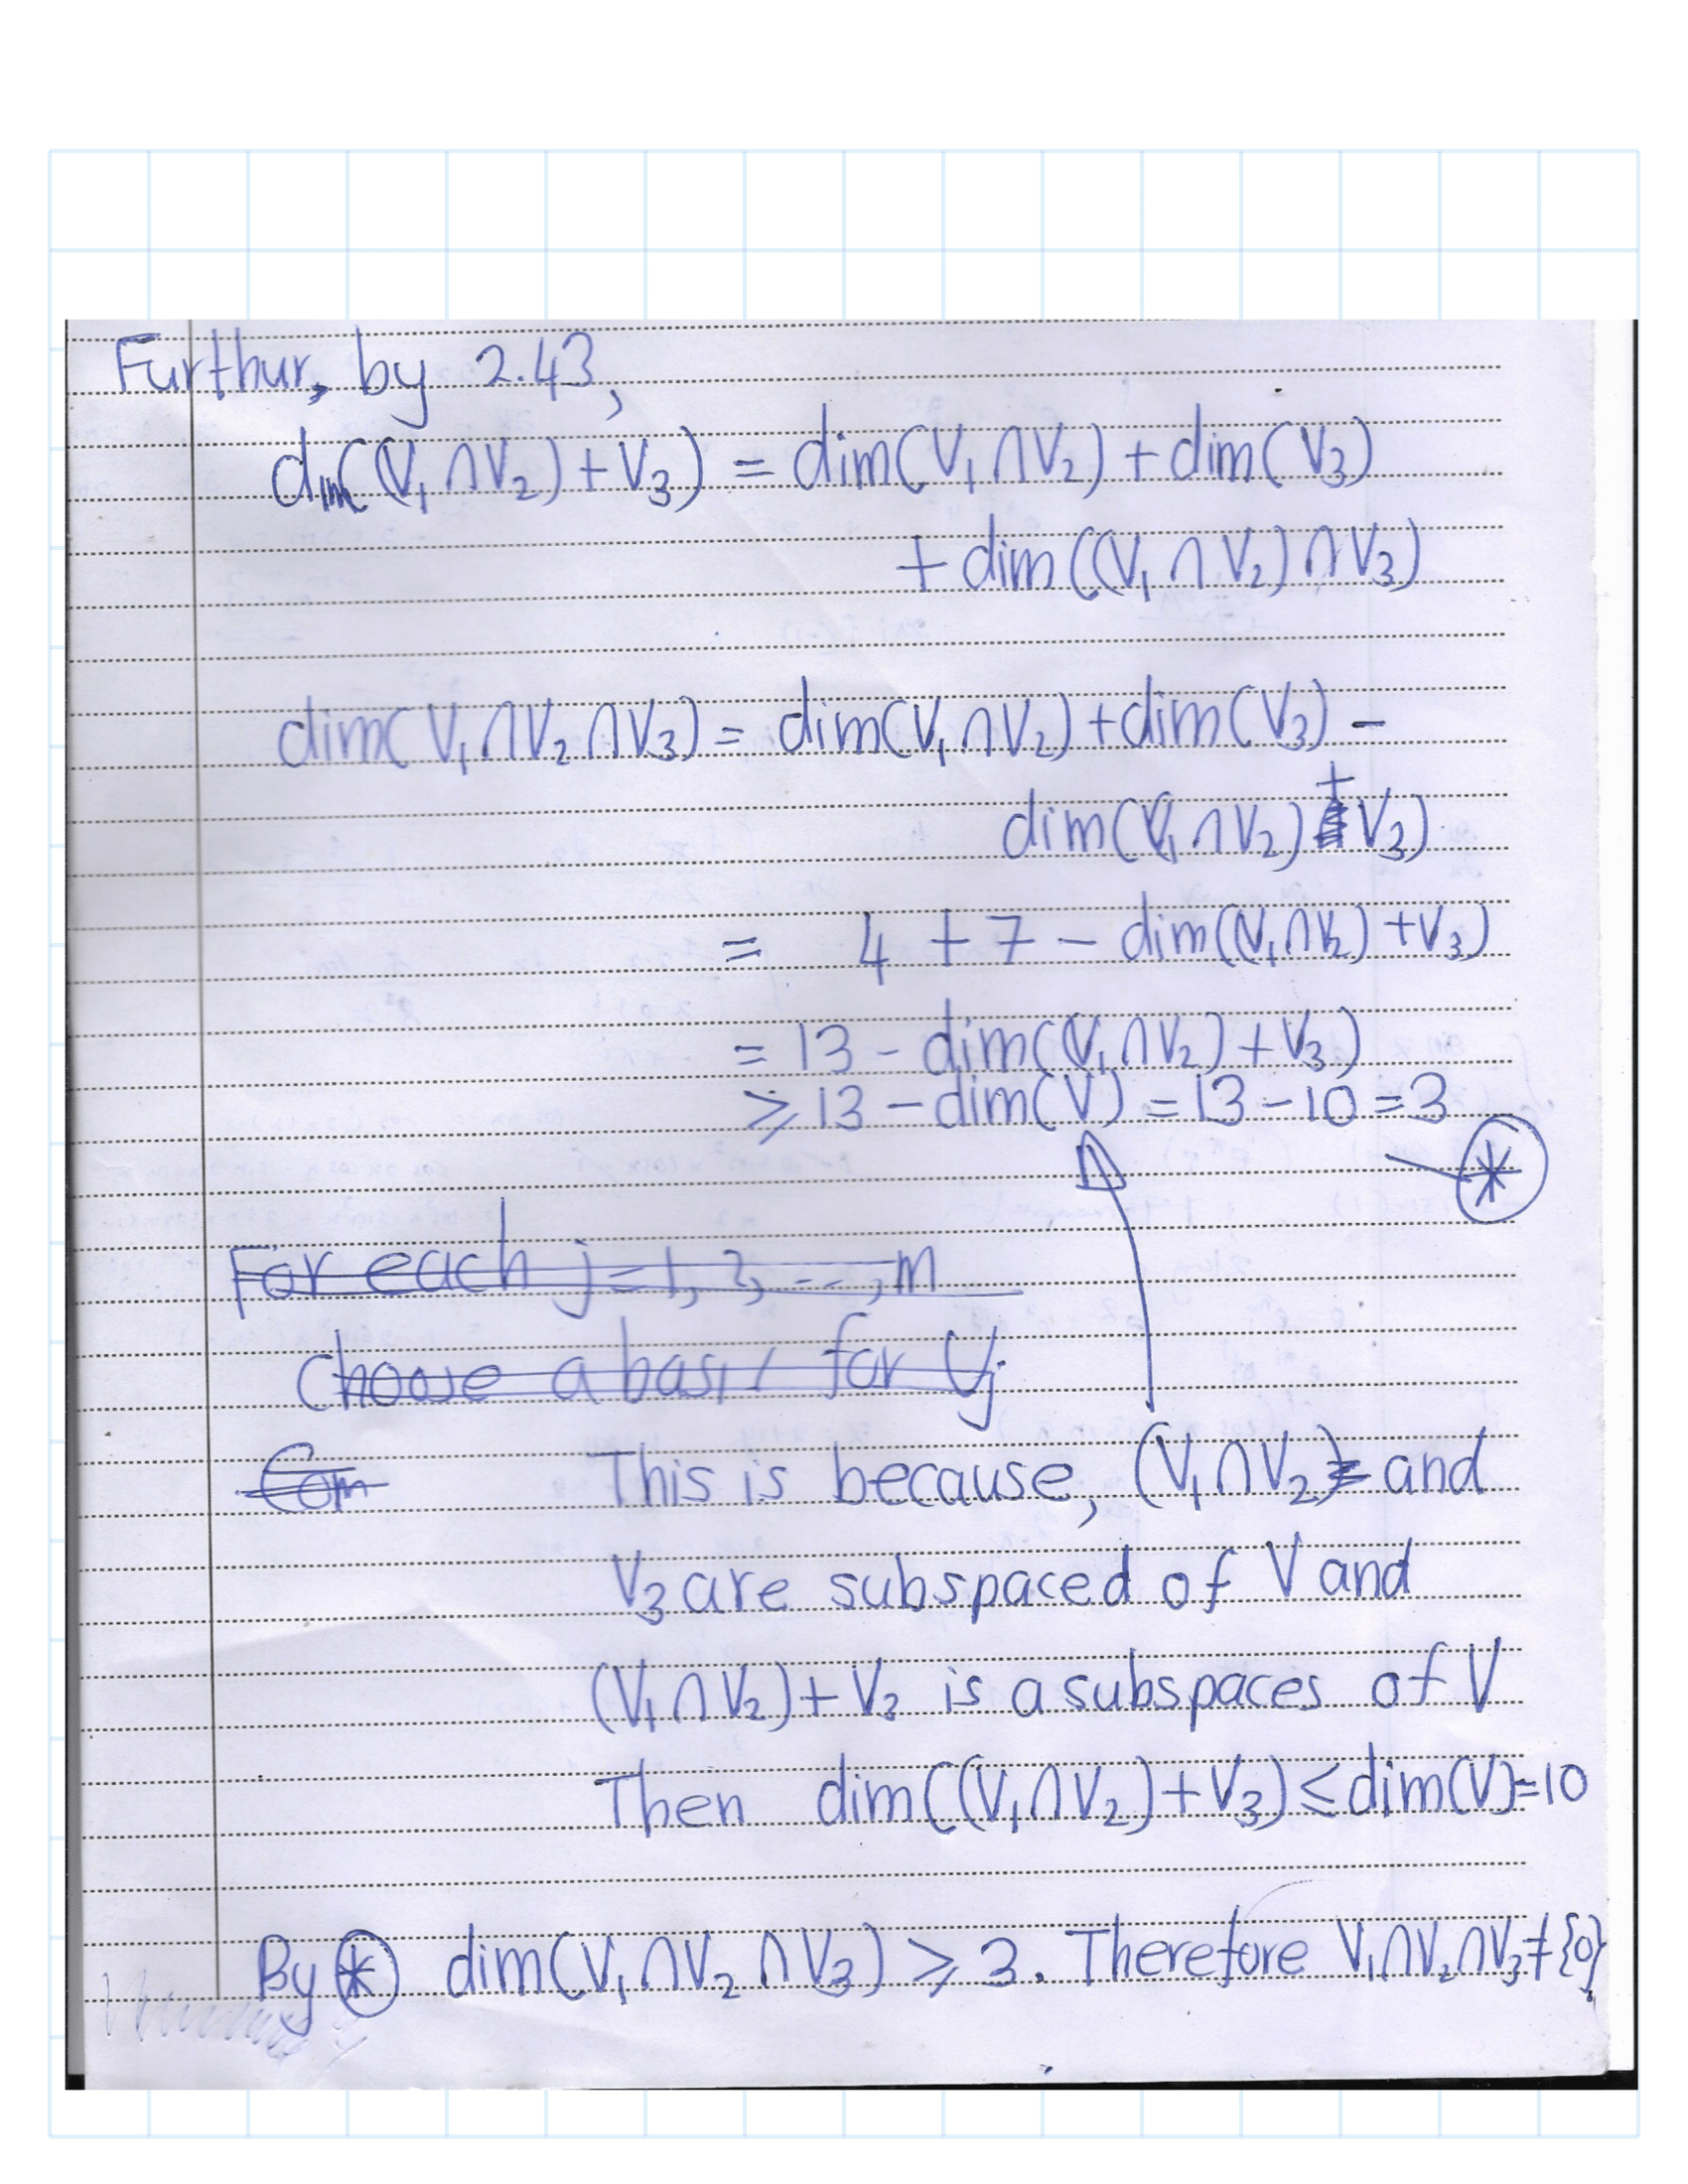 Furthur, by 2.43,
dim((V₁∩V₂)+V₃) = dim(V₁∩V₂)+dim(V₃)
+dim((V₁∩V₂)∩V₃)
dim(V₁∩V₂∩V₃) = dim(V₁∩V₂)+dim(V₃) –
dim(V₁∩V₂)+V₃)
= 4 + 7 – dim((V₁∩V₂)+V₃)
= 13 – dim((V₁∩V₂)+V₃)
≥ 13 – dim(V) = 13 – 10 = 3
*
For each j=1, 2, ---, m
Choose a basis for Vj
Com This is because, (V₁∩V₂) and
V₃ are subspaced of V and
(V₁∩V₂)+V₃ is a subspaces of V
Then dim((V₁∩V₂)+V₃) ≤ dim(V)=10
By * dim(V₁∩V₂∩V₃) ≥ 3. Therefore V₁∩V₂∩V₃≠{0}